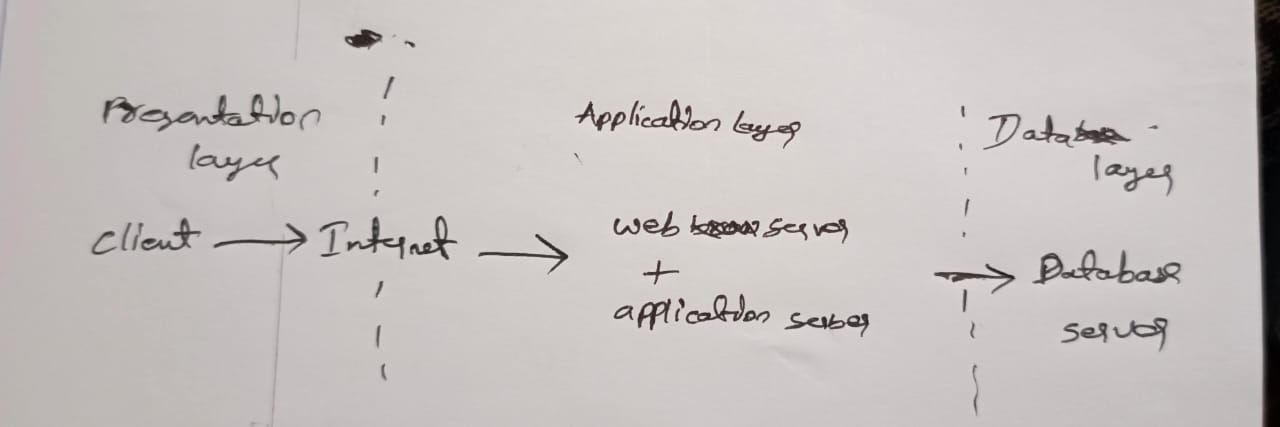 Presentation
layer
Application layer
Data
layer
Client → Internet →
web server
+
application server
→ Database
server